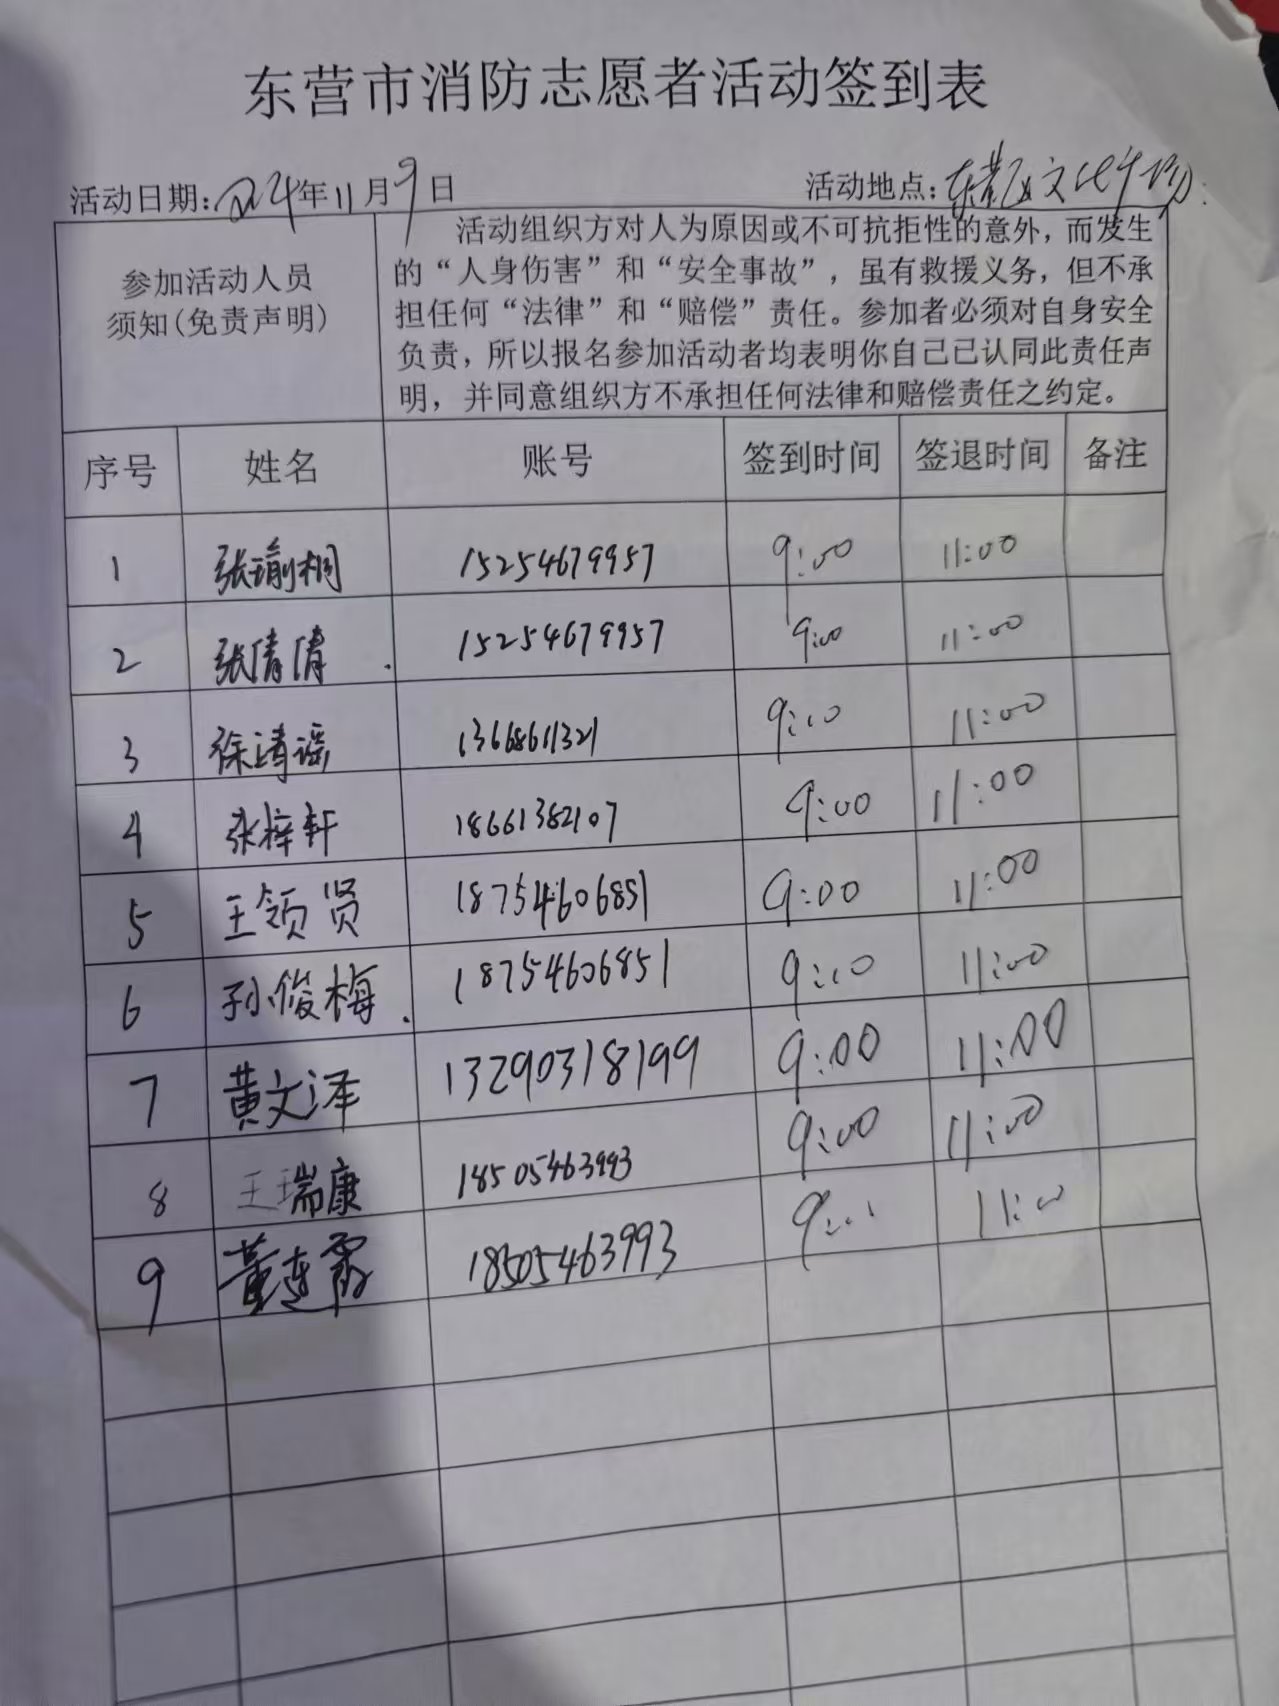 东营市消防志愿者活动签到表
活动日期:2024年11月9日 活动地点:东营区文化广场.
参加活动人员
须知(免责声明)
活动组织方对人为原因或不可抗拒性的意外，而发生
的“人身伤害”和“安全事故”，虽有救援义务，但不承
担任何“法律”和“赔偿”责任。参加者必须对自身安全
负责，所以报名参加活动者均表明你自己已认同此责任声
明，并同意组织方不承担任何法律和赔偿责任之约定。
序号 姓名 账号 签到时间 签退时间 备注
1 张瑜桐 15254679957 9:00 11:00
2 张倩倩 15254679957 9:00 11:00
3 徐靖谣 13668611321 9:00 11:00
4 张梓轩 18661382107 9:00 11:00
5 王领贤 18754606851 9:00 11:00
6 孙俊梅. 18754606851 9:00 11:00
7 黄文泽 13290318199 9:00 11:00
8 王瑞康 18505463993 9:00 11:00
9 董连霞 18505463993 11:00